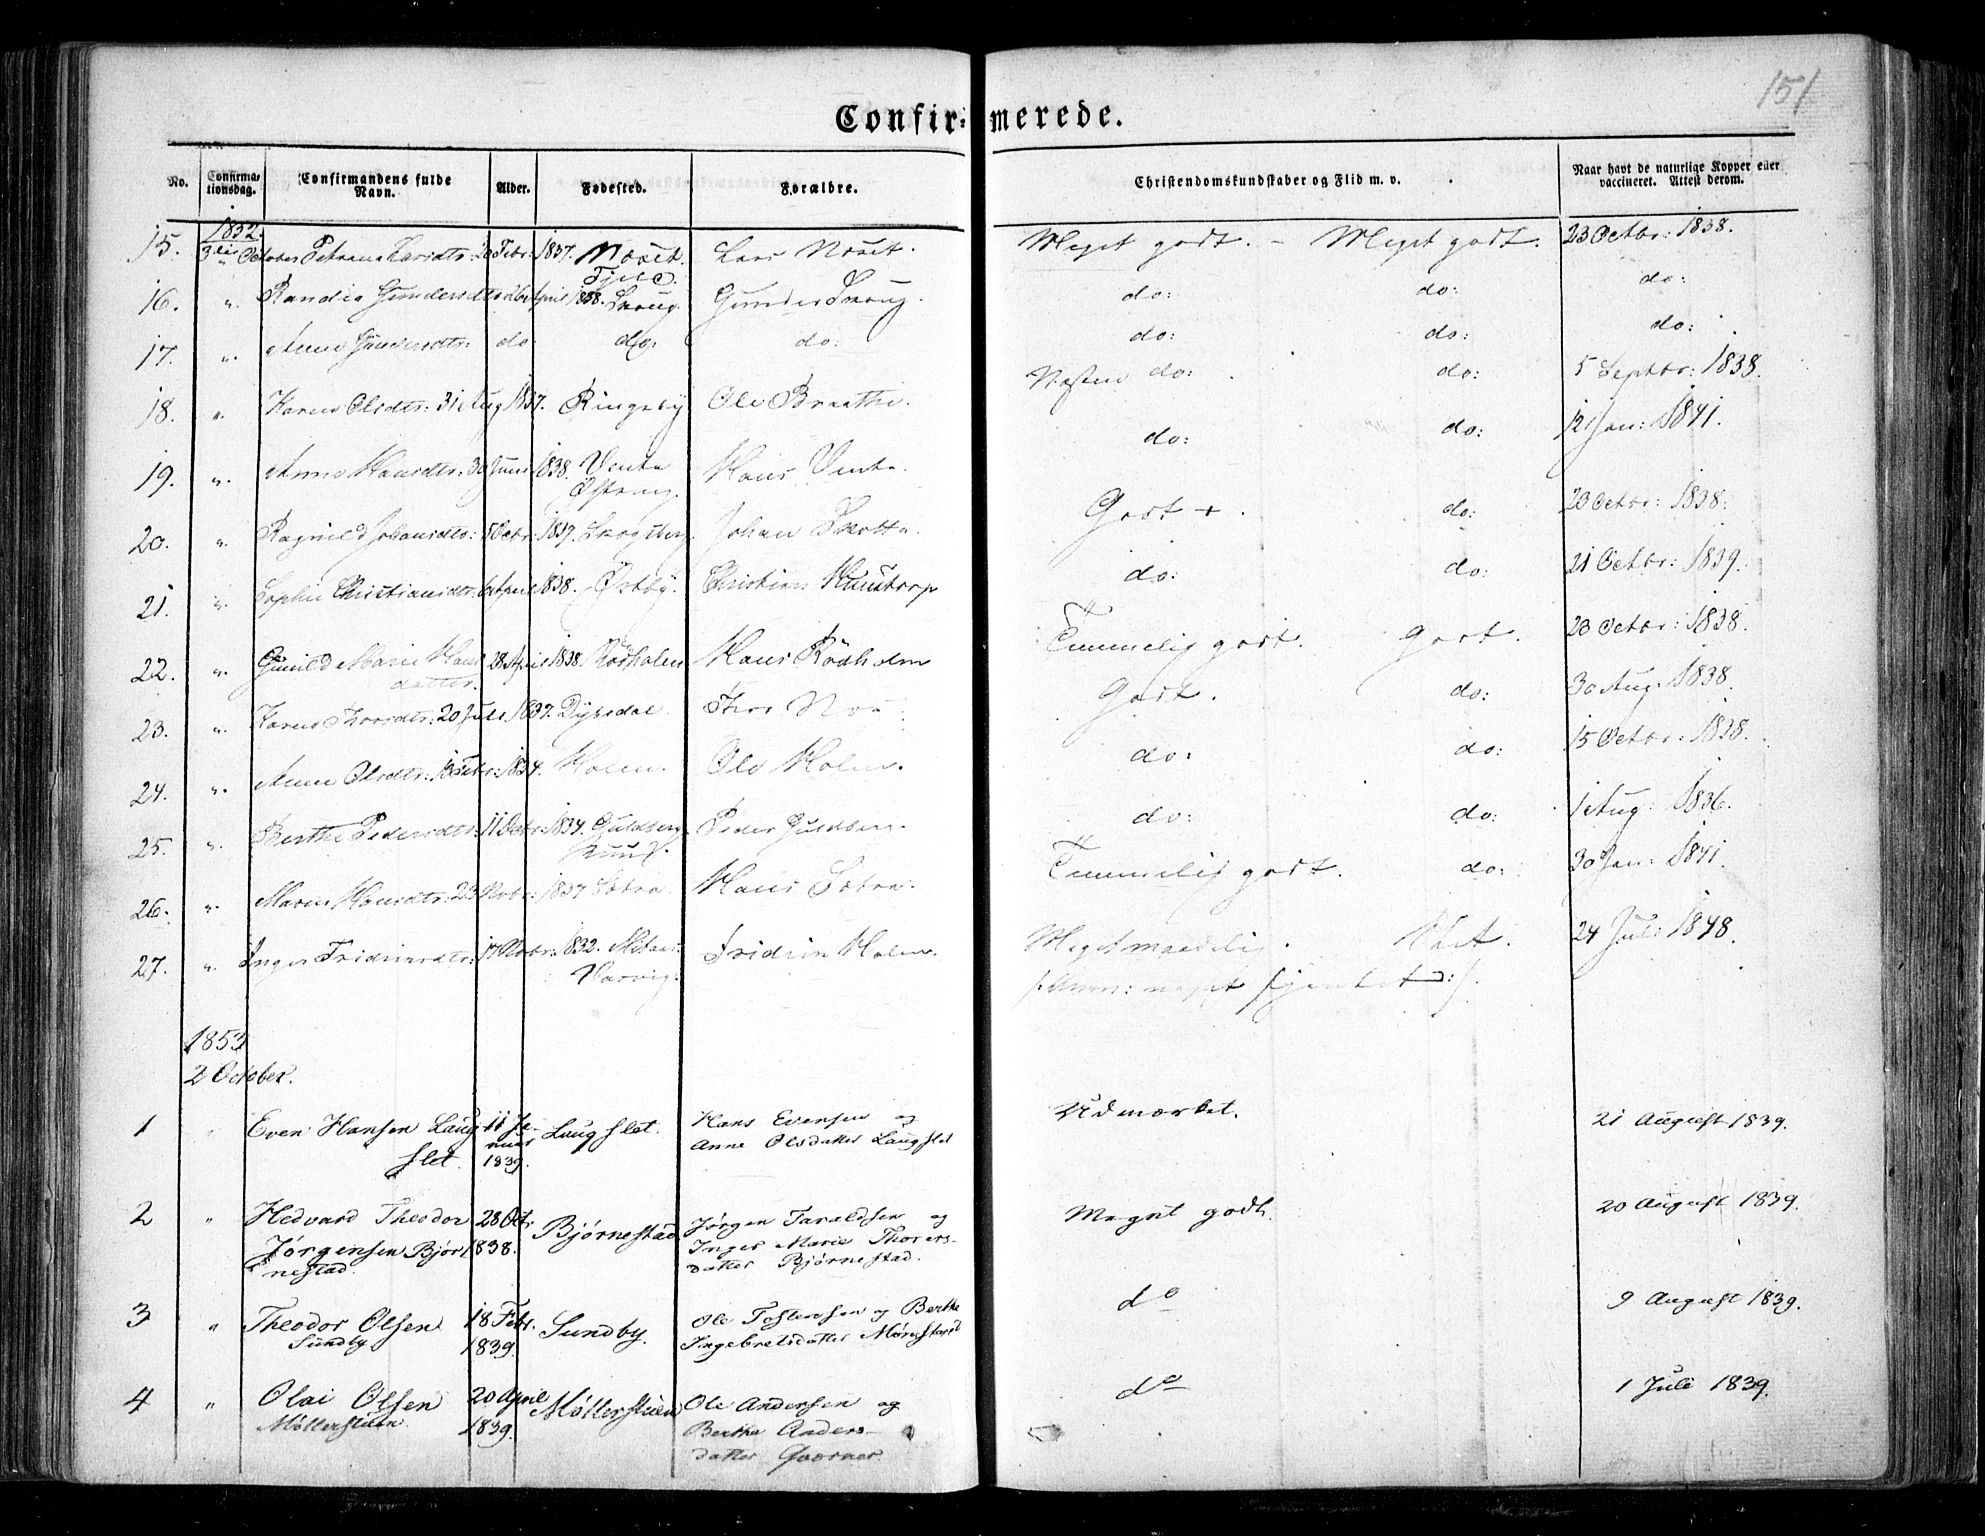 151
Confir=merede.
No. Confirma-tionsdag. Confirmandens fulde Navn. Alder. Fødested. Forældre. Christendomskundskaber og Flid m. v. Naar havt de naturlige Kopper eller vaccineret. Attest derom.
1852.
15. 3die October Petrane Larsdtr: Febr: 1837. Noset. Lars Noset. Meget godt. – Meget godt. 23 Octbr: 1838.
Fjeld.
16. " Randia Gundersdtr 26 April 1838. Skoug. Gunder Skoug. do: do: do:
17. " Anne Gundersdtr: do do: do: do: do: do:
18. " Karen Olsdtr: 31 Aug 1837. Ringsby Ole Braathe. Næsten do: do: 5 Septbr: 1838.
19. " Anne Hansdtr: 30 Juni 1838. Venta Hans Venta. do: do: 12 Jan: 1841.
20. " Ragnild Johansdtr: 5 Octbr: 1837. Skogsberg. Johan Skotta. Godt + . do: 23 Octbr: 1838.
21. " Sophie Christiansdtr: 6 April 1838. Østby. Christian Haustorp do: do: 21 Octbr: 1839.
22. " Gunild Marie Hans 28 April 1838. Rødholen Hans Rödholm Temmelig godt. Godt. 23 Octbr: 1838.
datter.
23. " Karen Thorsdtr: 20 Juli 1837. Dyredal Thor Godt. do: 30 Aug: 1838.
24. " Anne Olsdtr: 13 Febr: 1834. Holen. Ole Holen. do: do: 15 Octbr: 1838.
25. " Berthe Pedersdtr: 11 Octbr: 1834. Guldberg Peder Guldberg. do: do: 1 Aug: 1836.
26. " Maren Hansdtr: 23 Novbr: 1837 Sætra. Hans Sætra. Temmelig godt. do: 30 Jan: 1841.
27. " Inger Fridricsdtr: 17 Novbr: 1832. Fridrin Holen. Meget maadelig. Slet. 24 Juli 1848.
Varvig.
1853
2 October.
1 " Even Hansen Laug 11 Ja- Laugslet. Hans Evensen og Udmærket. 21 August 1839.
slet. nuar 1839. Anne Olsdatter Laugslet
2 " Hedvard Theodor 28 Oct. Bjørnestad Jørgen Taraldsen og Meget godt. 20 August 1839.
Jørgensen Bjør 1838. Inger Marie Thorers-
nestad. datter Bjørnestad.
3 " Theodor Olsen 18 Febr. Sundby. Ole Tostensen og Berthe do 9 August 1839.
Sundby 1839. Ingebretsdatter Mørestad
4 " Olai Olsen 20 April Møllerstuen Ole Andersen og do 1 Juli 1839.
Møllerstuen 1839. Berthe Anders-
datter Qværner